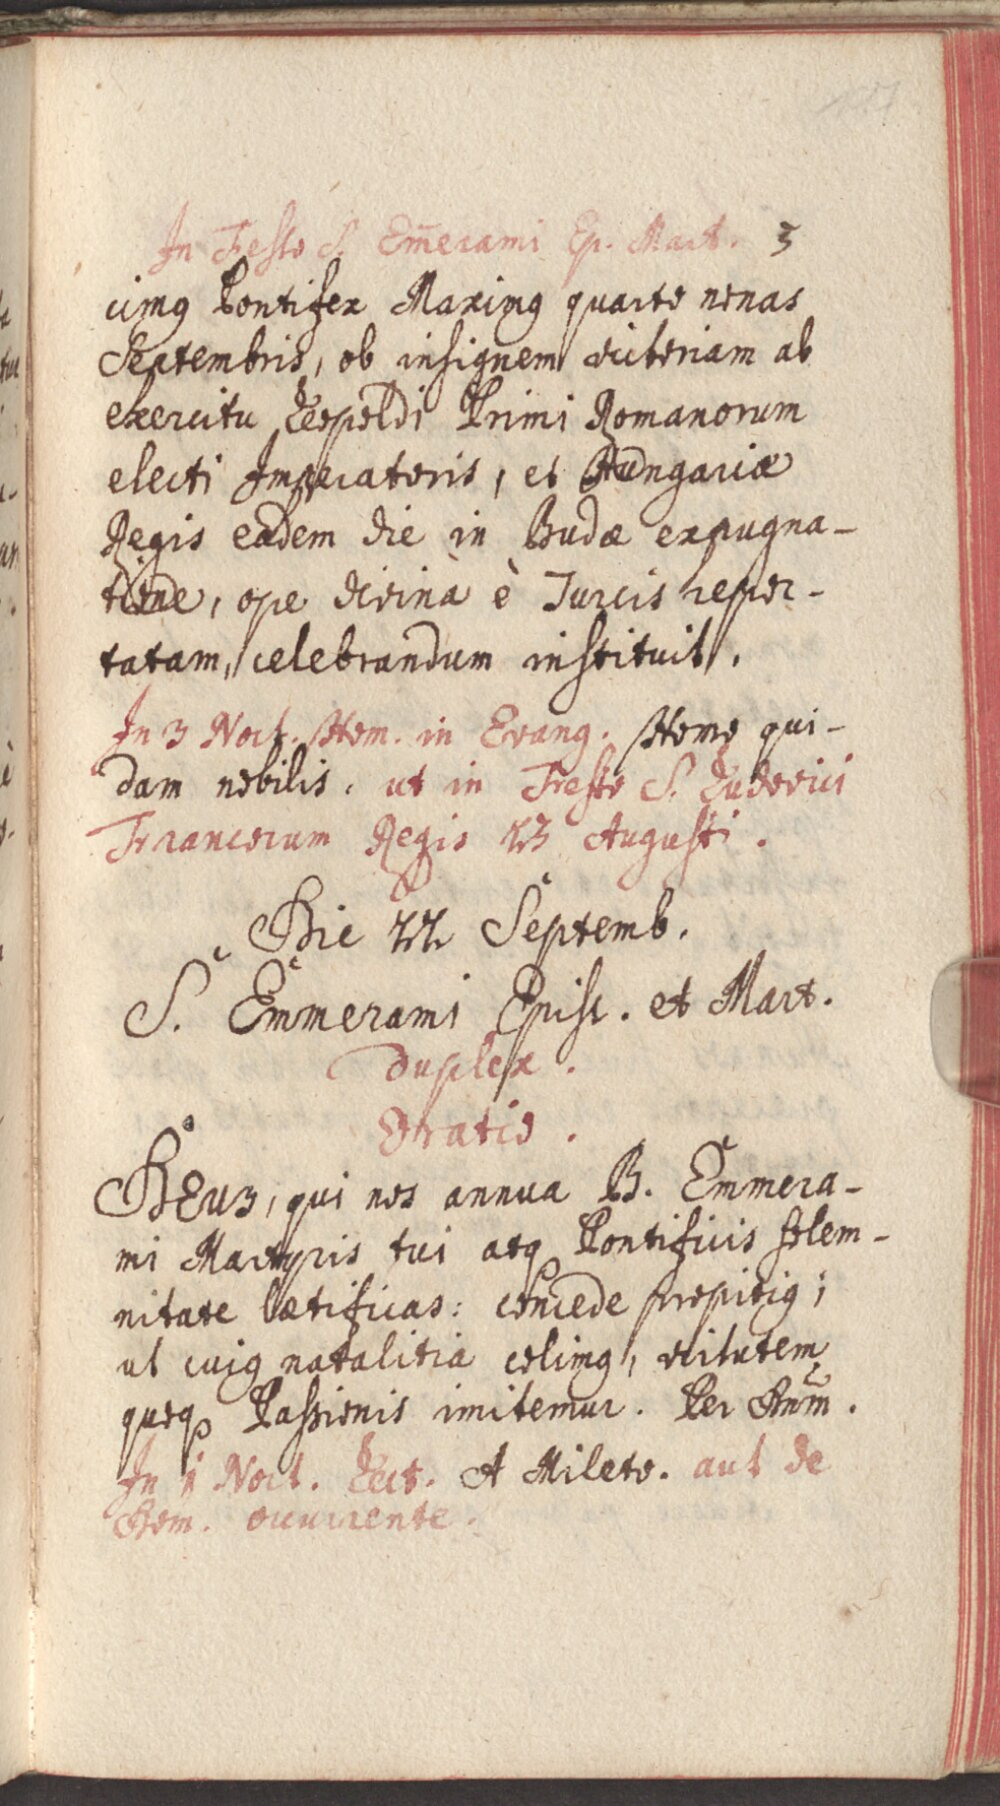 In Festo S. Em̄erami Ep. Mart. 3
cimꝰ Pontifex Maximꝰ quarto nonas
Septembris, ob insignem victoriam ab
exercitu Leopoldi Primi Romanorum
electi Imperatoris, et Hungariæ
Regis eadem die in Budæ expugna-
tione, ope divinà è Turcis repor-
tatam, celebrandum instituit.
In 3 Noct. Hom. in Evang. Homo qui-
dam nobilis. ut in Festo S. Ludovici
Francorum Regis 25 Augusti.
Die 22 Septemb.
S. Emmerami Episc. et Mart.
duplex.
Oratio.
DEUS, qui nos annua B. Emmera-
mi Martyris tui atqꝫ Pontificis solem-
nitate lætificas: concede propitiꝰ;
ut cuiꝰ natalitia colimꝰ, virtutem
quoqꝫ Passionis imitemur. Per Dnm̄.
In 1 Noct. Lect. A Mileto. aut de
Com. occurrente.